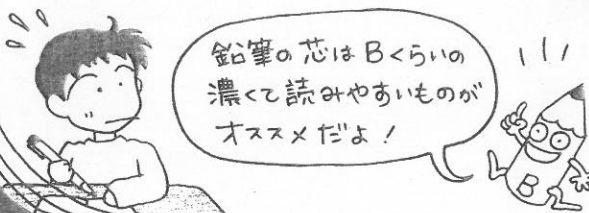 鉛筆の芯はBくらいの
濃くて読みやすいものが
オススメだよ！
B